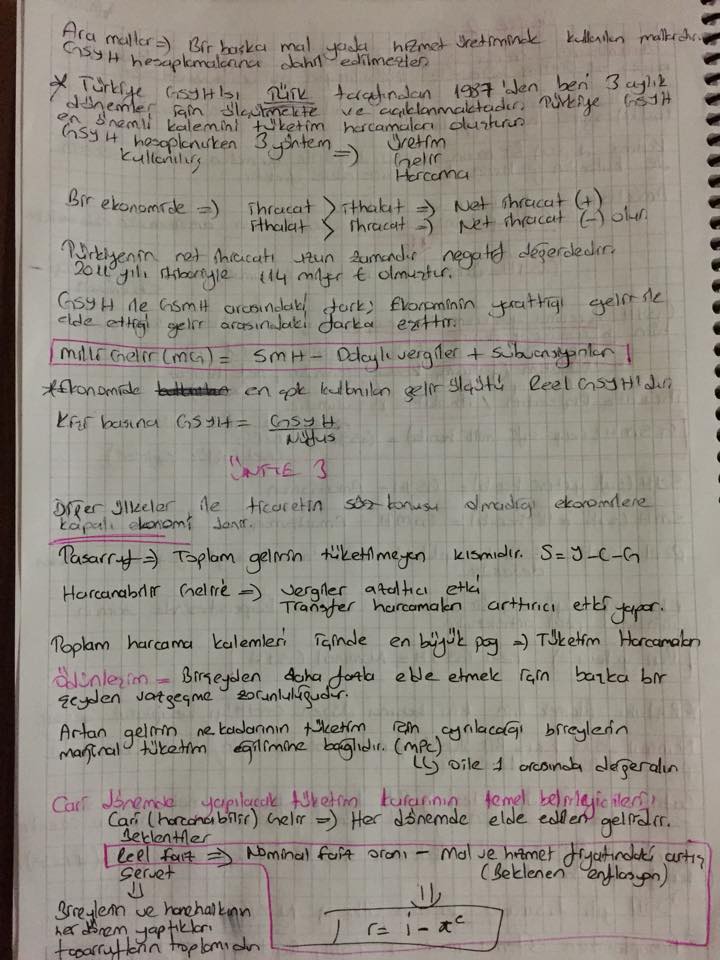 Ara mallar => Bir başka mal yada hizmet üretiminde kullanılan mallardır.
GSYH hesaplamalarına dahil edilmezler.
* Türkiye GSYH'sı TÜİK tarafından 1987'den beri 3 aylık
dönemler için ölçülmekte ve açıklanmaktadır. Türkiye GSYH
en önemli kalemini tüketim harcamaları oluşturur.
GSYH hesaplanırken 3 yöntem => Üretim
kullanılır Gelir
Harcama
Bir ekonomide => ihracat > ithalat => Net ihracat (+)
ithalat > ihracat => Net ihracat (-) olur.
Türkiyenin net ihracatı uzun zamandır negatif değerdedir.
2011 yılı itibariyle 114 milyar olmuştur.
GSYH ile GSMH arasındaki fark; Ekonominin yarattığı gelir ile
elde ettiği gelir arasındaki farka eşittir.
Milli Gelir (MG) = SMH - Dolaylı vergiler + Sübvansiyonlar
*Ekonomide en çok kullanılan gelir ölçütü Reel GSYH'dır.
Kişi başına GSYH = GSYH
Nüfus
ÜNİTE 3
Diğer ülkeler ile ticaretin söz konusu olmadığı ekonomilere
kapalı ekonomi denir.
Tasarruf => Toplam gelirin tüketilmeyen kısmıdır. S = Y-C-G
Harcanabilir Gelire => vergiler azaltıcı etki
Transfer harcamaları arttırıcı etki yapar.
Toplam harcama kalemleri içinde en büyük pay => Tüketim Harcamaları
Ödünleşim = Birşeyden daha fazla elde etmek için başka bir
şeyden vazgeçme zorunluluğudur.
Artan gelirin ne kadarının tüketim için ayrılacağı bireylerin
marjinal tüketim eğilimine bağlıdır. (mpc)
0 ile 1 arasında değer alır
Cari dönemde yapılacak tüketim kararının temel belirleyicileri;
Cari (harcanabilir) Gelir => Her dönemde elde edilen gelirdir.
Beklentiler
Reel faiz => Nominal faiz oranı - Mal ve hizmet fiyatındaki artış
Servet (Beklenen enflasyon)
Bireylerin ve hanehalkının
her dönem yaptıkları r = i - πᵉ
tasarrufların toplamıdır